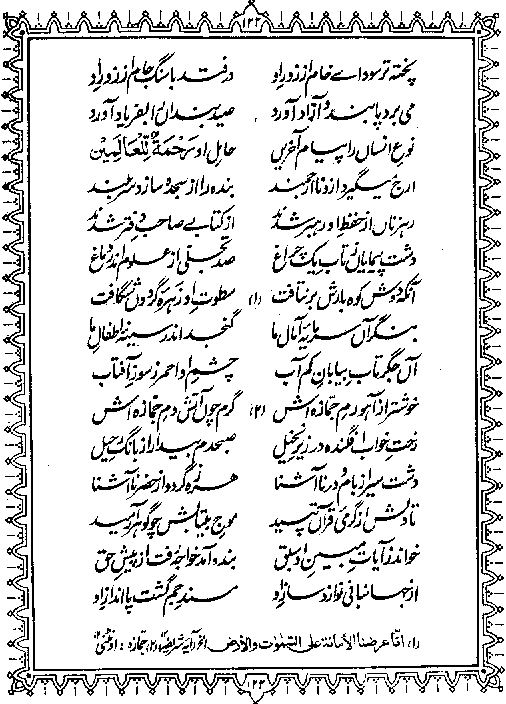 ۱۲۳
پختہ تر سوداے خام از زورِ او    در فتد با سنگ جام از زورِ او
می برد پابند و آزاد آورد    صید بنداں را بفریاد آورد
نوعِ انساں را پیامِ آخریں    حاملِ او رَحْمَةٌ لِّلْعَالَمِیْن
ارج میگیرد ازو نا ارجمند    بندہ را از سجدہ سازد سر بلند
رہزناں از حفظِ او رہبر شدند    از کتابے صاحبِ دفتر شدند
دشت پیمایاں ز تابِ یک چراغ    صد تجلی از علوم اندر دماغ
آنکہ دوشِ کوہ بارش بر نتافت (۱) سطوتِ او زہرۂ گردوں شگافت
بنگر آں سرمایۂ آمالِ ما    گنجد اندر سینۂ اطفالِ ما
آں جگر تابِ بیابانِ کم آب    چشمِ او احمر ز سوزِ آفتاب
خوشتر از آہو رمِ جمازہ اش (۲) گرم چوں آتش دمِ جمازہ اش
رختِ خواب افگندہ در زیرِ نخیل    صبحدم بیدار از بانگِ رحیل
دشت سیر از بام و در نا آشنا    ہرزہ گردد از حضر نا آشنا
تا دلش از گرمیِ قرآں تپید    موجِ بیتابش چو گوہر آرمید
خواند ز آیاتِ مبینِ او سبق    بندہ آمد خواجہ رفت از پیشِ حق
از جہانبانی نوازد سازِ او    مسندِ جم گشت پا اندازِ او
(۱) انّا عرضنا الأمانة علی السّمٰوٰت والأرض (۲) جمازہ : اونٹنی
۱۲۳